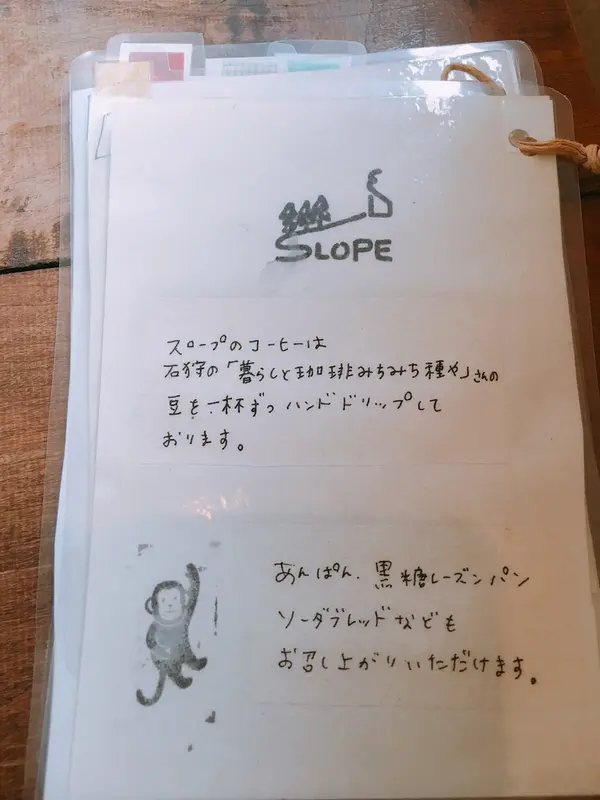 SLOPE
スロープのコーヒーは
石狩の「暮らしと珈琲みちみち種や」さんの
豆を一杯ずつハンドドリップして
おります。
あんぱん、黒糖レーズンパン
ソーダブレッドなども
お召し上がりいただけます。